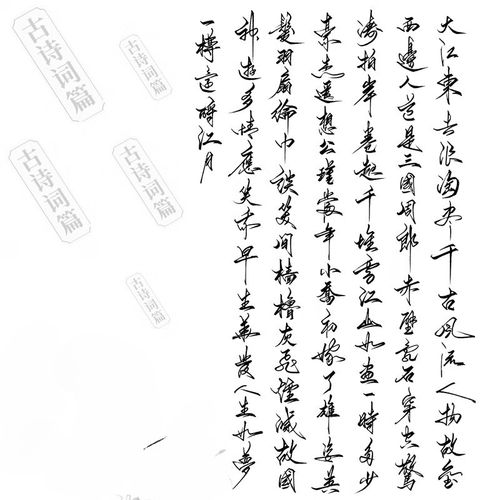 大江東去浪淘尽千古風流人物故壘
西邊人道是三國周郎赤壁亂石穿空驚
濤拍岸卷起千堆雪江山如畫一時多少
豪杰遥想公瑾當年小喬初嫁了雄姿英
髮羽扇綸巾談笑間檣櫓灰飛煙滅故國
神遊多情應笑我早生華發人生如夢
一樽還酹江月
古诗词篇
古诗词篇
古诗词篇
古诗词篇
古诗词篇